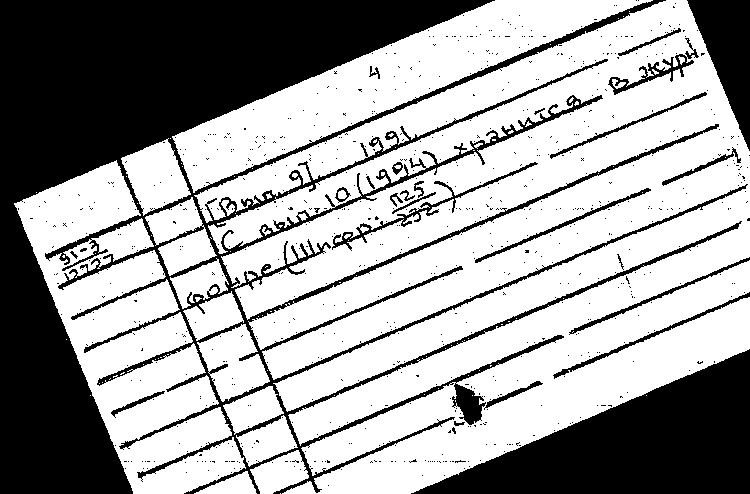 4
[Вып. 9] 1991.
С вып. 10 (1994) хранится в журн.
91-3
фонде (Шифр: П25
232)